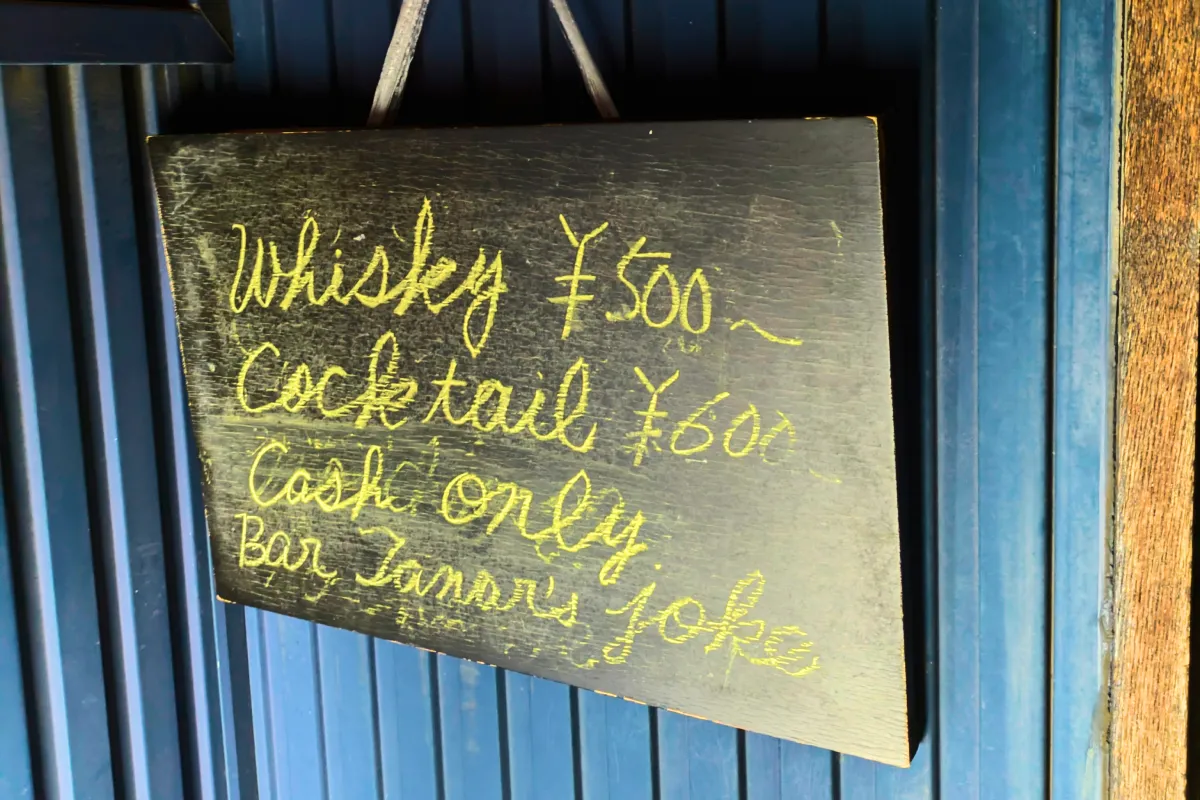 Whisky ¥500~
Cocktail ¥600~
Cash only
Bar, Tanar's joke